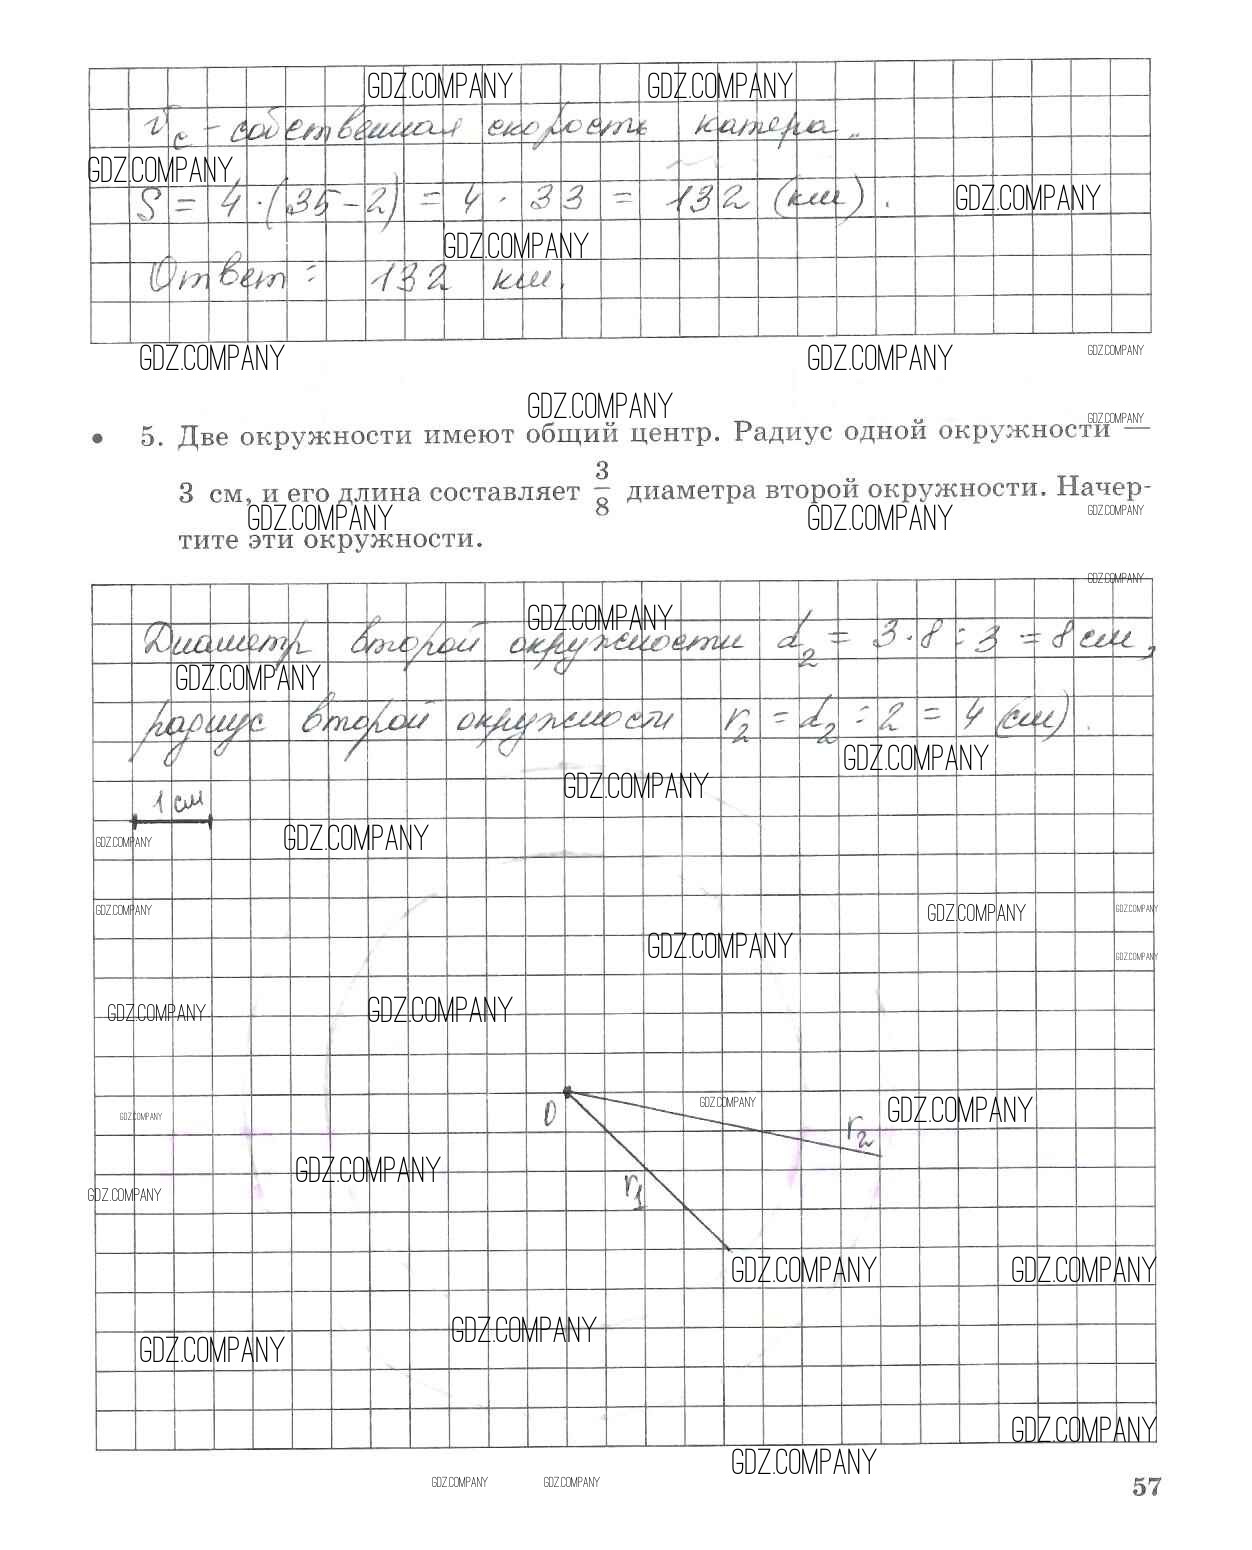 GDZ.COMPANY GDZ.COMPANY
Vс – собственная скорость катера.
GDZ.COMPANY
S = 4 · (35 – 2) = 4 · 33 = 132 (км).
GDZ.COMPANY
GDZ.COMPANY
Ответ: 132 км.
GDZ.COMPANY GDZ.COMPANY GDZ.COMPANY
GDZ.COMPANY
GDZ.COMPANY
• 5. Две окружности имеют общий центр. Радиус одной окружности —
3 см, и его длина составляет 3/8 диаметра второй окружности. Начер-
GDZ.COMPANY GDZ.COMPANY GDZ.COMPANY
тите эти окружности.
GDZ.COMPANY
GDZ.COMPANY
Диаметр второй окружности d2 = 3·8:3 = 8 см,
GDZ.COMPANY
радиус второй окружности r2 = d2 : 2 = 4 (см).
GDZ.COMPANY
GDZ.COMPANY
1 см
GDZ.COMPANY GDZ.COMPANY
GDZ.COMPANY GDZ.COMPANY GDZ.COMPANY
GDZ.COMPANY GDZ.COMPANY
GDZ.COMPANY GDZ.COMPANY
GDZ.COMPANY GDZ.COMPANY
O
GDZ.COMPANY
r2
GDZ.COMPANY
GDZ.COMPANY
r1
GDZ.COMPANY GDZ.COMPANY
GDZ.COMPANY
GDZ.COMPANY
GDZ.COMPANY
GDZ.COMPANY
GDZ.COMPANY GDZ.COMPANY
57